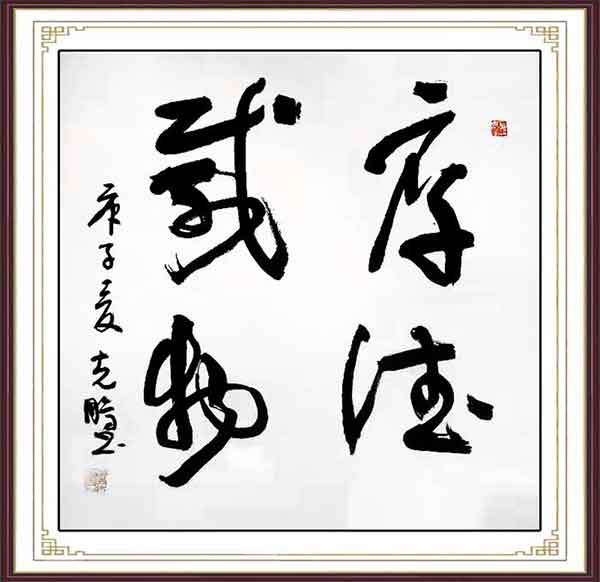 厚德
载物
庚子夏 克鹏书